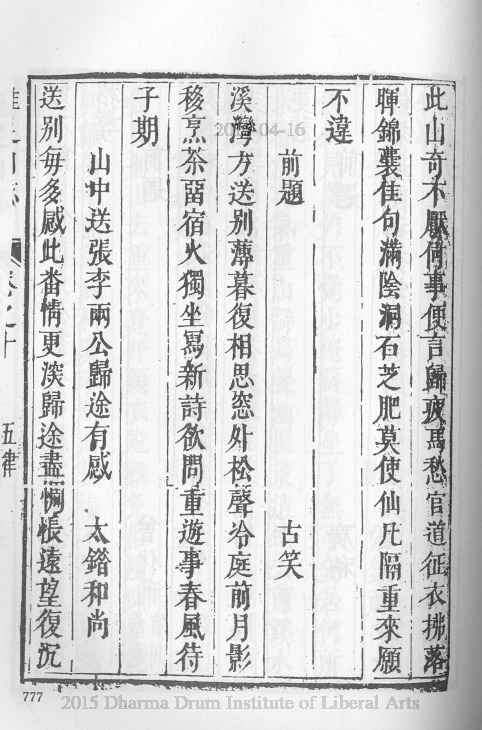 此山奇不厭何事便言歸疲馬愁官道征衣拂落
暉錦囊佳句滿陰洞石芝肥莫使仙凡隔重來願
不違
前題　古笑
溪灣方送別薄暮復相思窓外松聲冷庭前月影
移烹茶畱宿火獨坐寫新詩欲問重遊事春風待
子期
山中送張李兩公歸途有感　太鍇和尚
送別每多感此畨情更深歸途盡惆悵遠望復沉
卷之十　五律
777
2015 Dharma Drum Institute of Liberal Arts